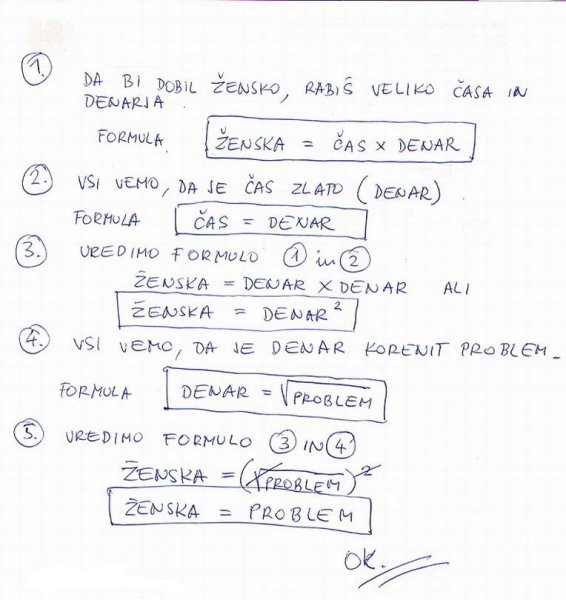 1. DA BI DOBIL ŽENSKO, RABIŠ VELIKO ČASA IN
DENARJA.
FORMULA. ŽENSKA = ČAS × DENAR
2. VSI VEMO, DA JE ČAS ZLATO (DENAR)
FORMULA ČAS = DENAR
3. UREDIMO FORMULO 1 in 2
ŽENSKA = DENAR × DENAR ALI
ŽENSKA = DENAR²
4. VSI VEMO, DA JE DENAR KORENIT PROBLEM.
FORMULA DENAR = √PROBLEM
5. UREDIMO FORMULO 3 IN 4
ŽENSKA = (√PROBLEM)²
ŽENSKA = PROBLEM
OK.